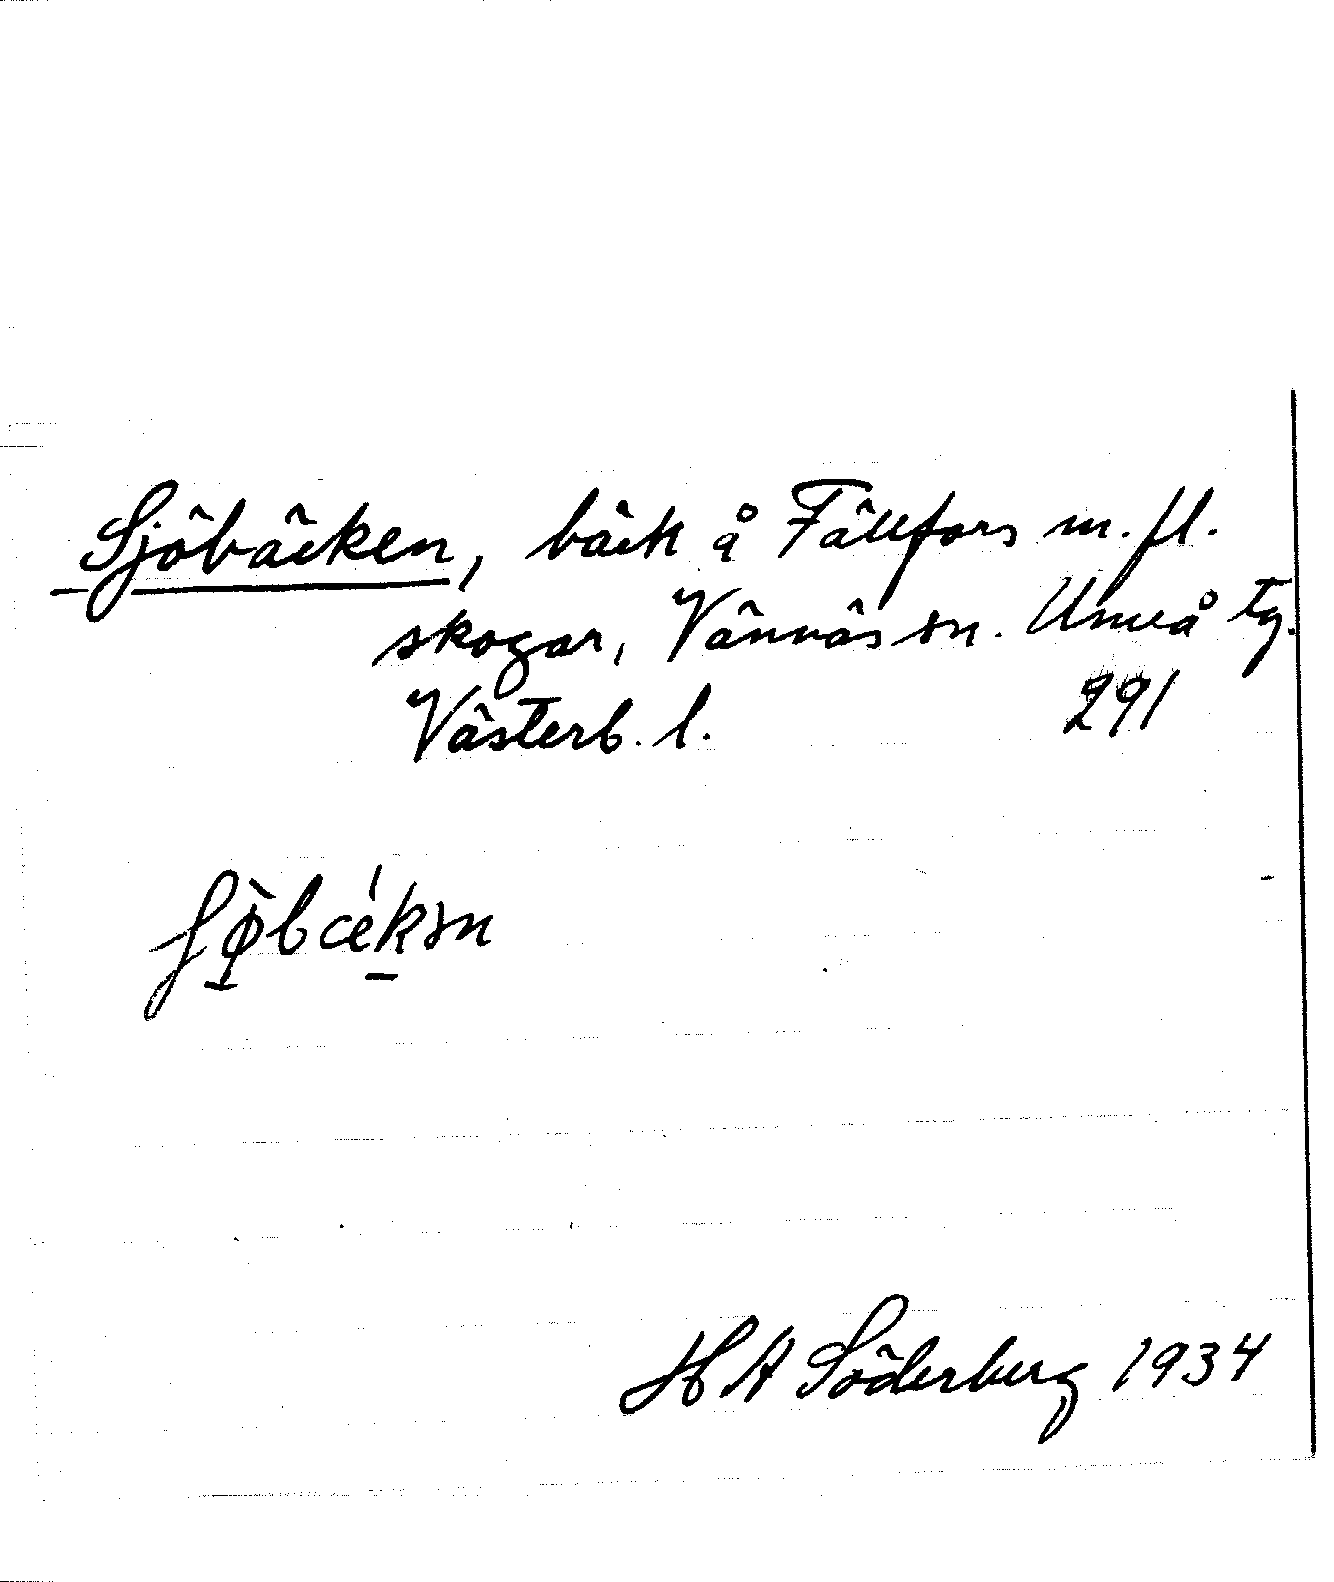 Sjöbäcken, bäck å Fällfors m. fl.
skogar, Vännäs sn. Umeå tg.
Västerb. l. 291
ʃø̀bǽkən
H A Söderberg 1934